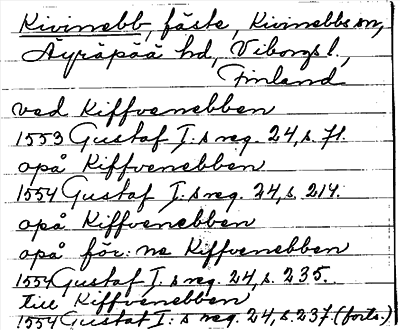 Kivinebb, fäste, Kivinebbs sn,
Äyräpää hd, Viborgs l.,
Finland
ved Kiffvenebben
1553 Gustaf I:s reg. 24, s. 71.
opå Kiffvenebben
1554 Gustaf I:s reg. 24, s. 214.
opå Kiffvenebben
opå för:ne Kiffvenebben
1554 Gustaf I:s reg. 24, s. 235.
till Kiffvenebben
1554 Gustaf I:s reg. 24, s. 237 (forts.)